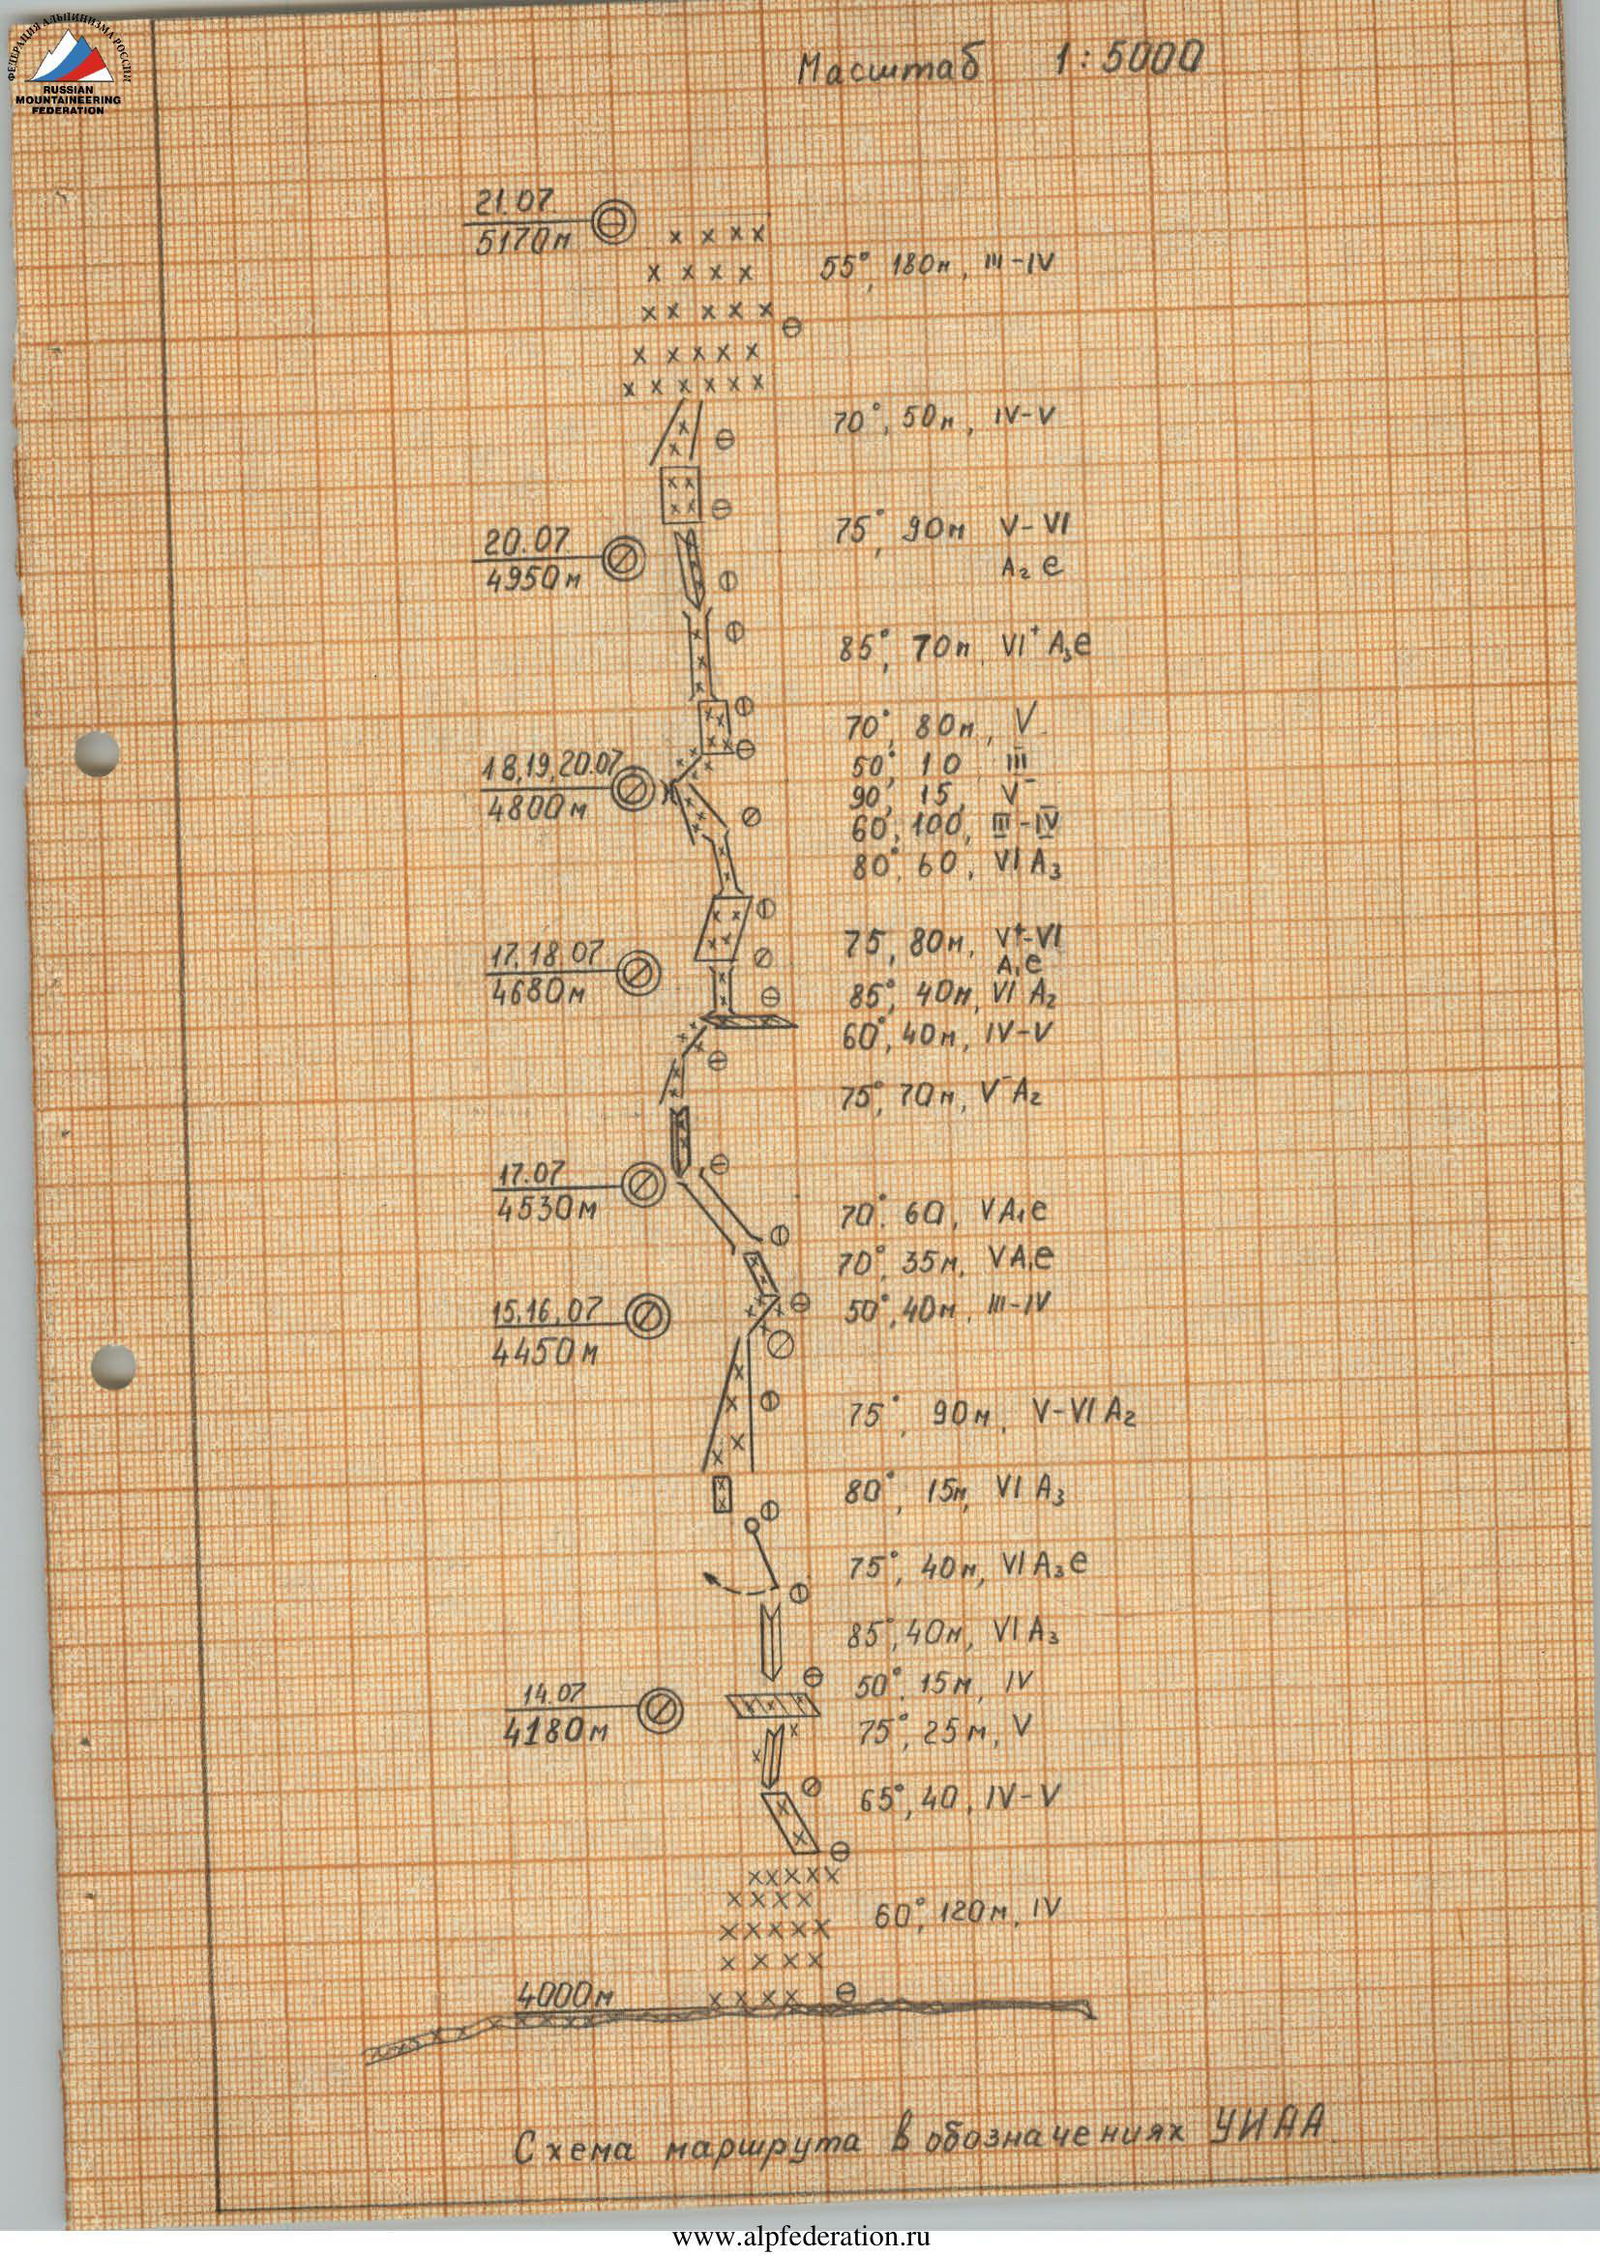 ФЕДЕРАЦИЯ АЛЬПИНИЗМА РОССИИ
RUSSIAN
MOUNTAINEERING
FEDERATION
Масштаб 1:5000
21.07
5170м
55°, 180м, III-IV
70°, 50м, IV-V
75°, 90м V-VI
A₂ e
20.07
4950м
85°, 70м VI⁺ A₃e
70°, 80м, V
50°, 10 III
90°, 15, V⁻
60°, 100, III-IV
80°, 60, VI A₃
18,19,20.07
4800м
75, 80м, V⁺-VI
A₁e
17.18.07
4680м
85°, 40м, VI A₂
60°, 40м, IV-V
75°, 70м, V⁻A₂
17.07
4530м
70°. 60, V A₁e
70°, 35м, V A₁e
50°, 40м, III-IV
15.16.07
4450м
75°, 90м, V-VI A₂
80°, 15м, VI A₃
75°, 40м, VI A₃e
85°, 40м, VI A₃
50°, 15м, IV
14.07
4180м
75°, 25м, V
65°, 40, IV-V
60°, 120м, IV
4000м
Схема маршрута в обозначениях УИАА
www.alpfederation.ru